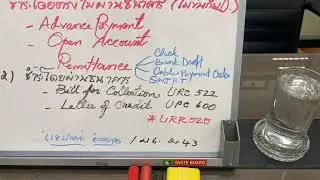 ชำระโดยตรงไม่ผ่านธนาคาร
- Advance Payment
- Open Account
- Remittance
Check
Bank Draft
Cable Payment Order
SWIFT
2) ชำระโดยผ่านธนาคาร
- Bill for Collection URC 522
- Letter of Credit UPC 600
* URR 525
43
WHITE BOARD